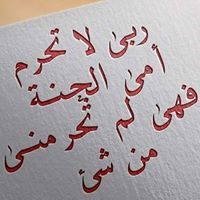 ربى لا تحرم
أمى الجنة
فهى لم تحرمنى
من شئ